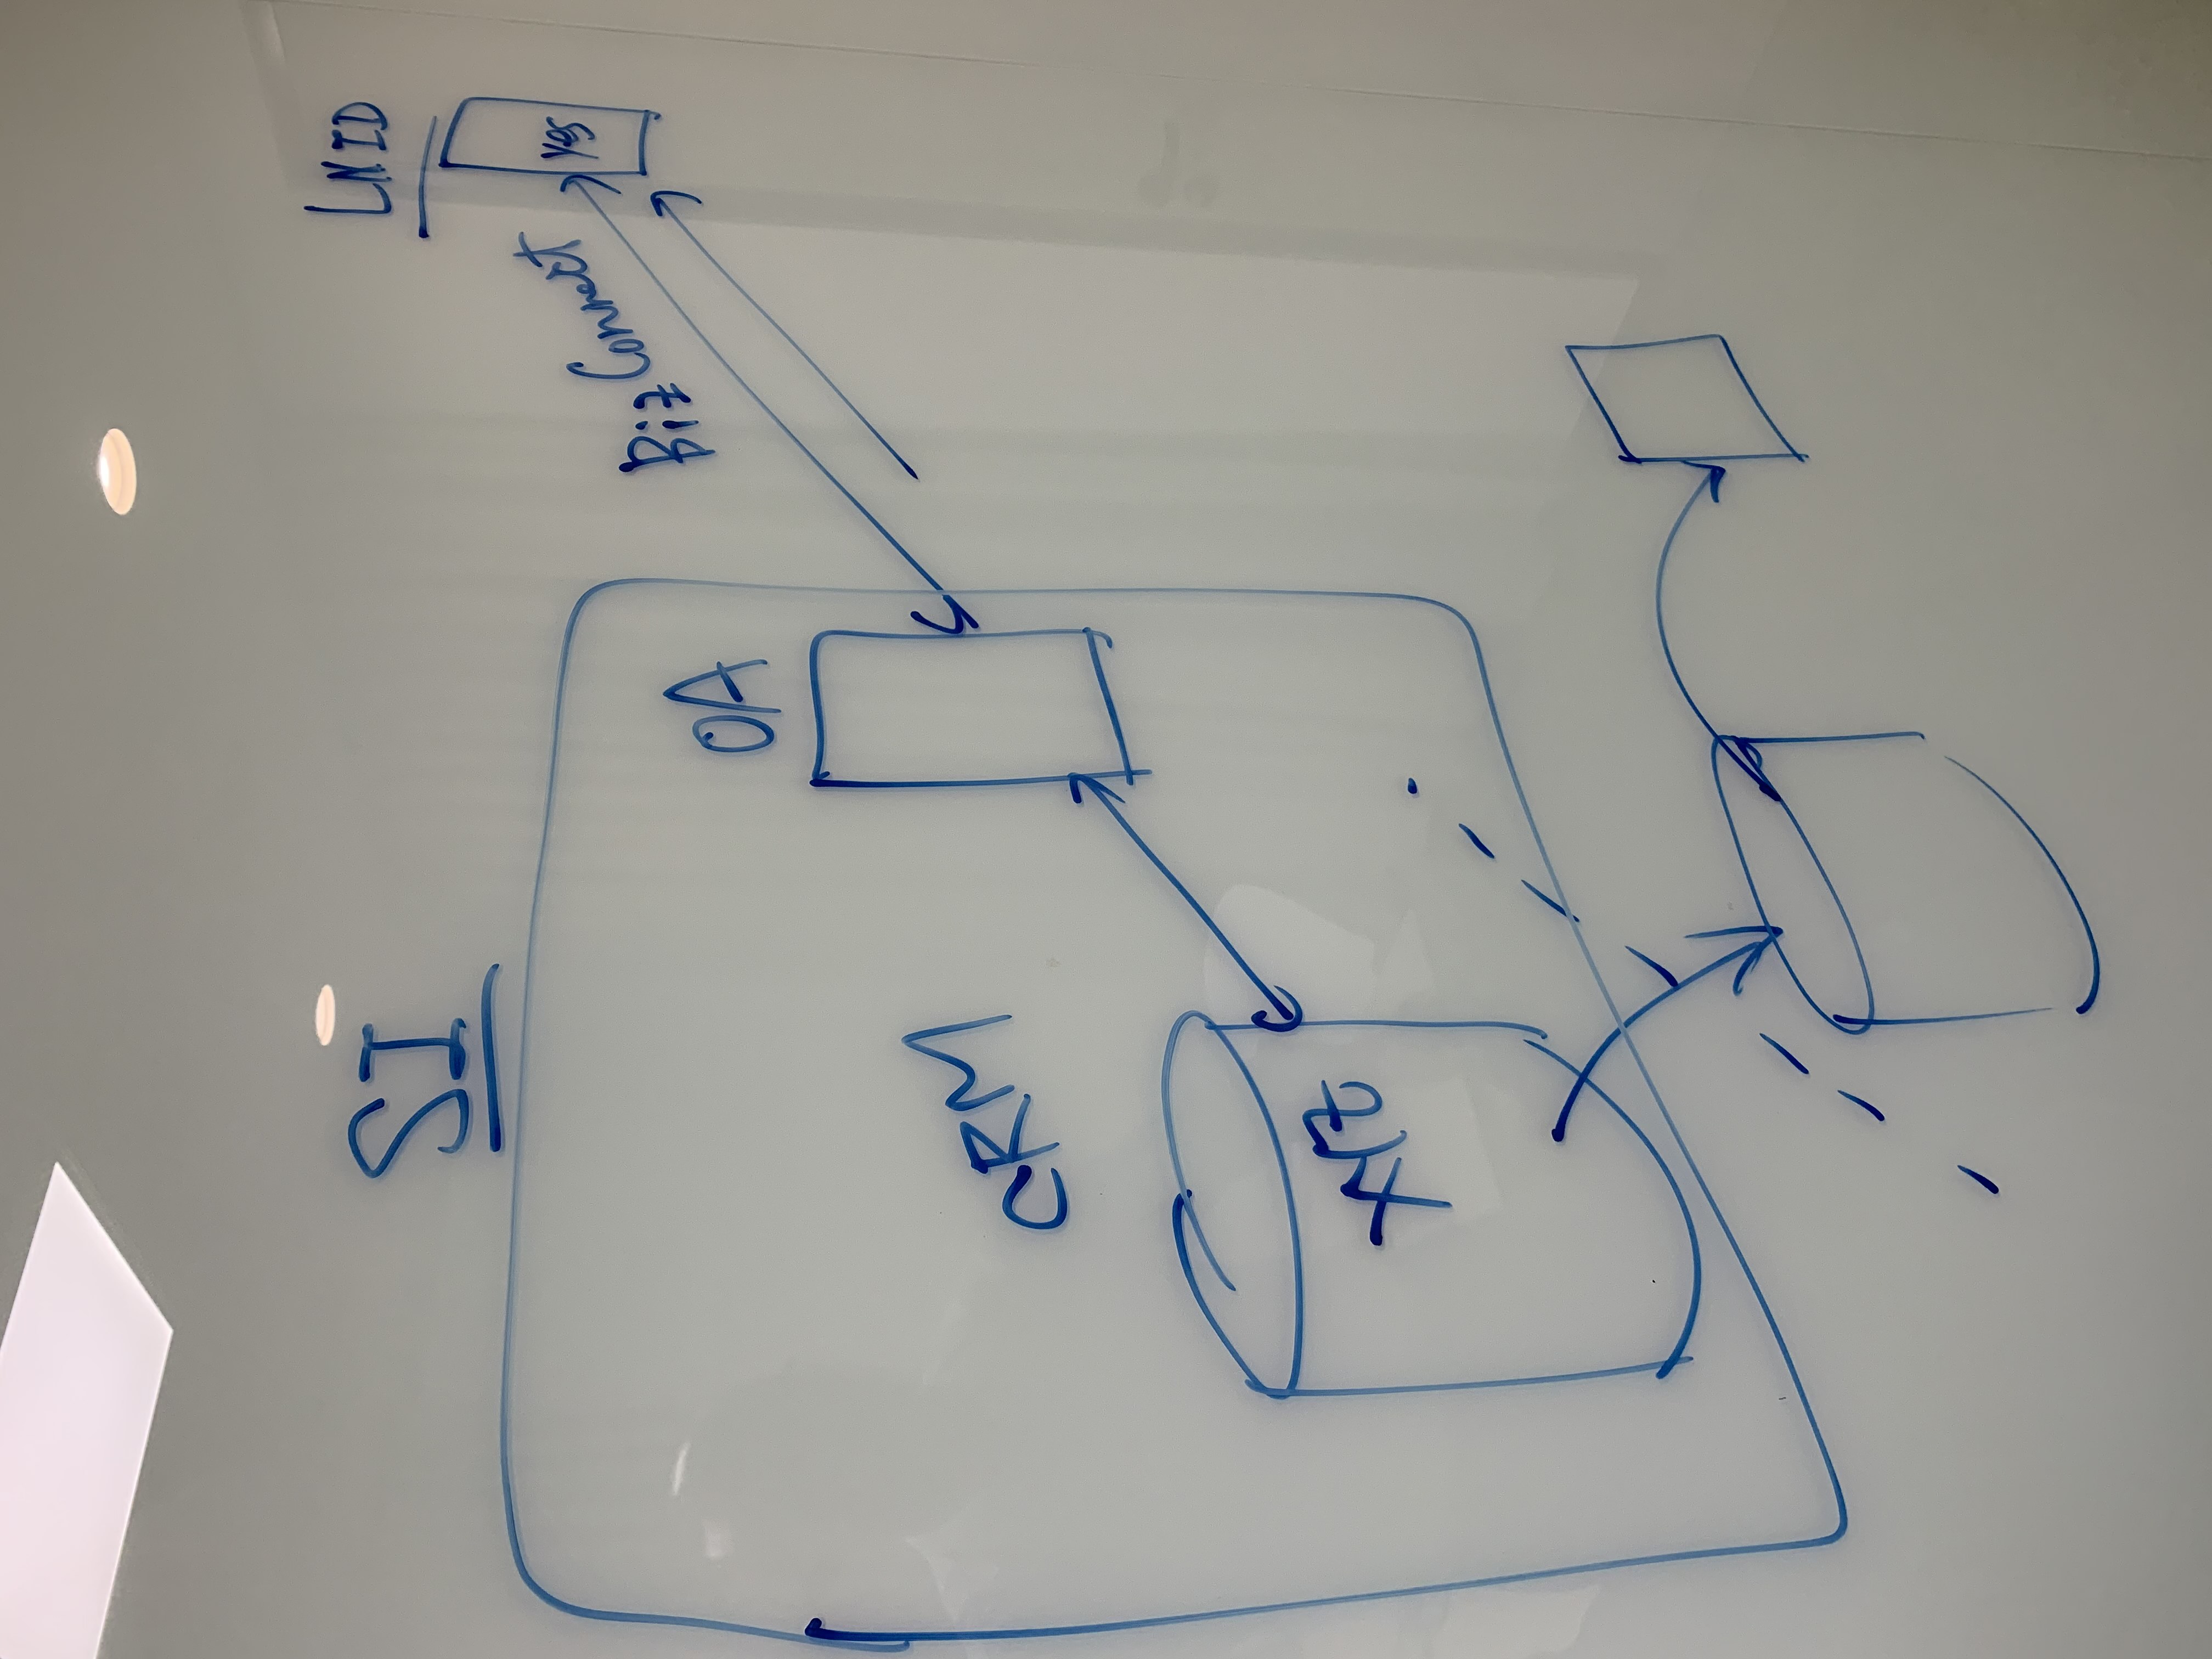 SI
LNID
yes
Biz Connect
OA
CRM
XYZ